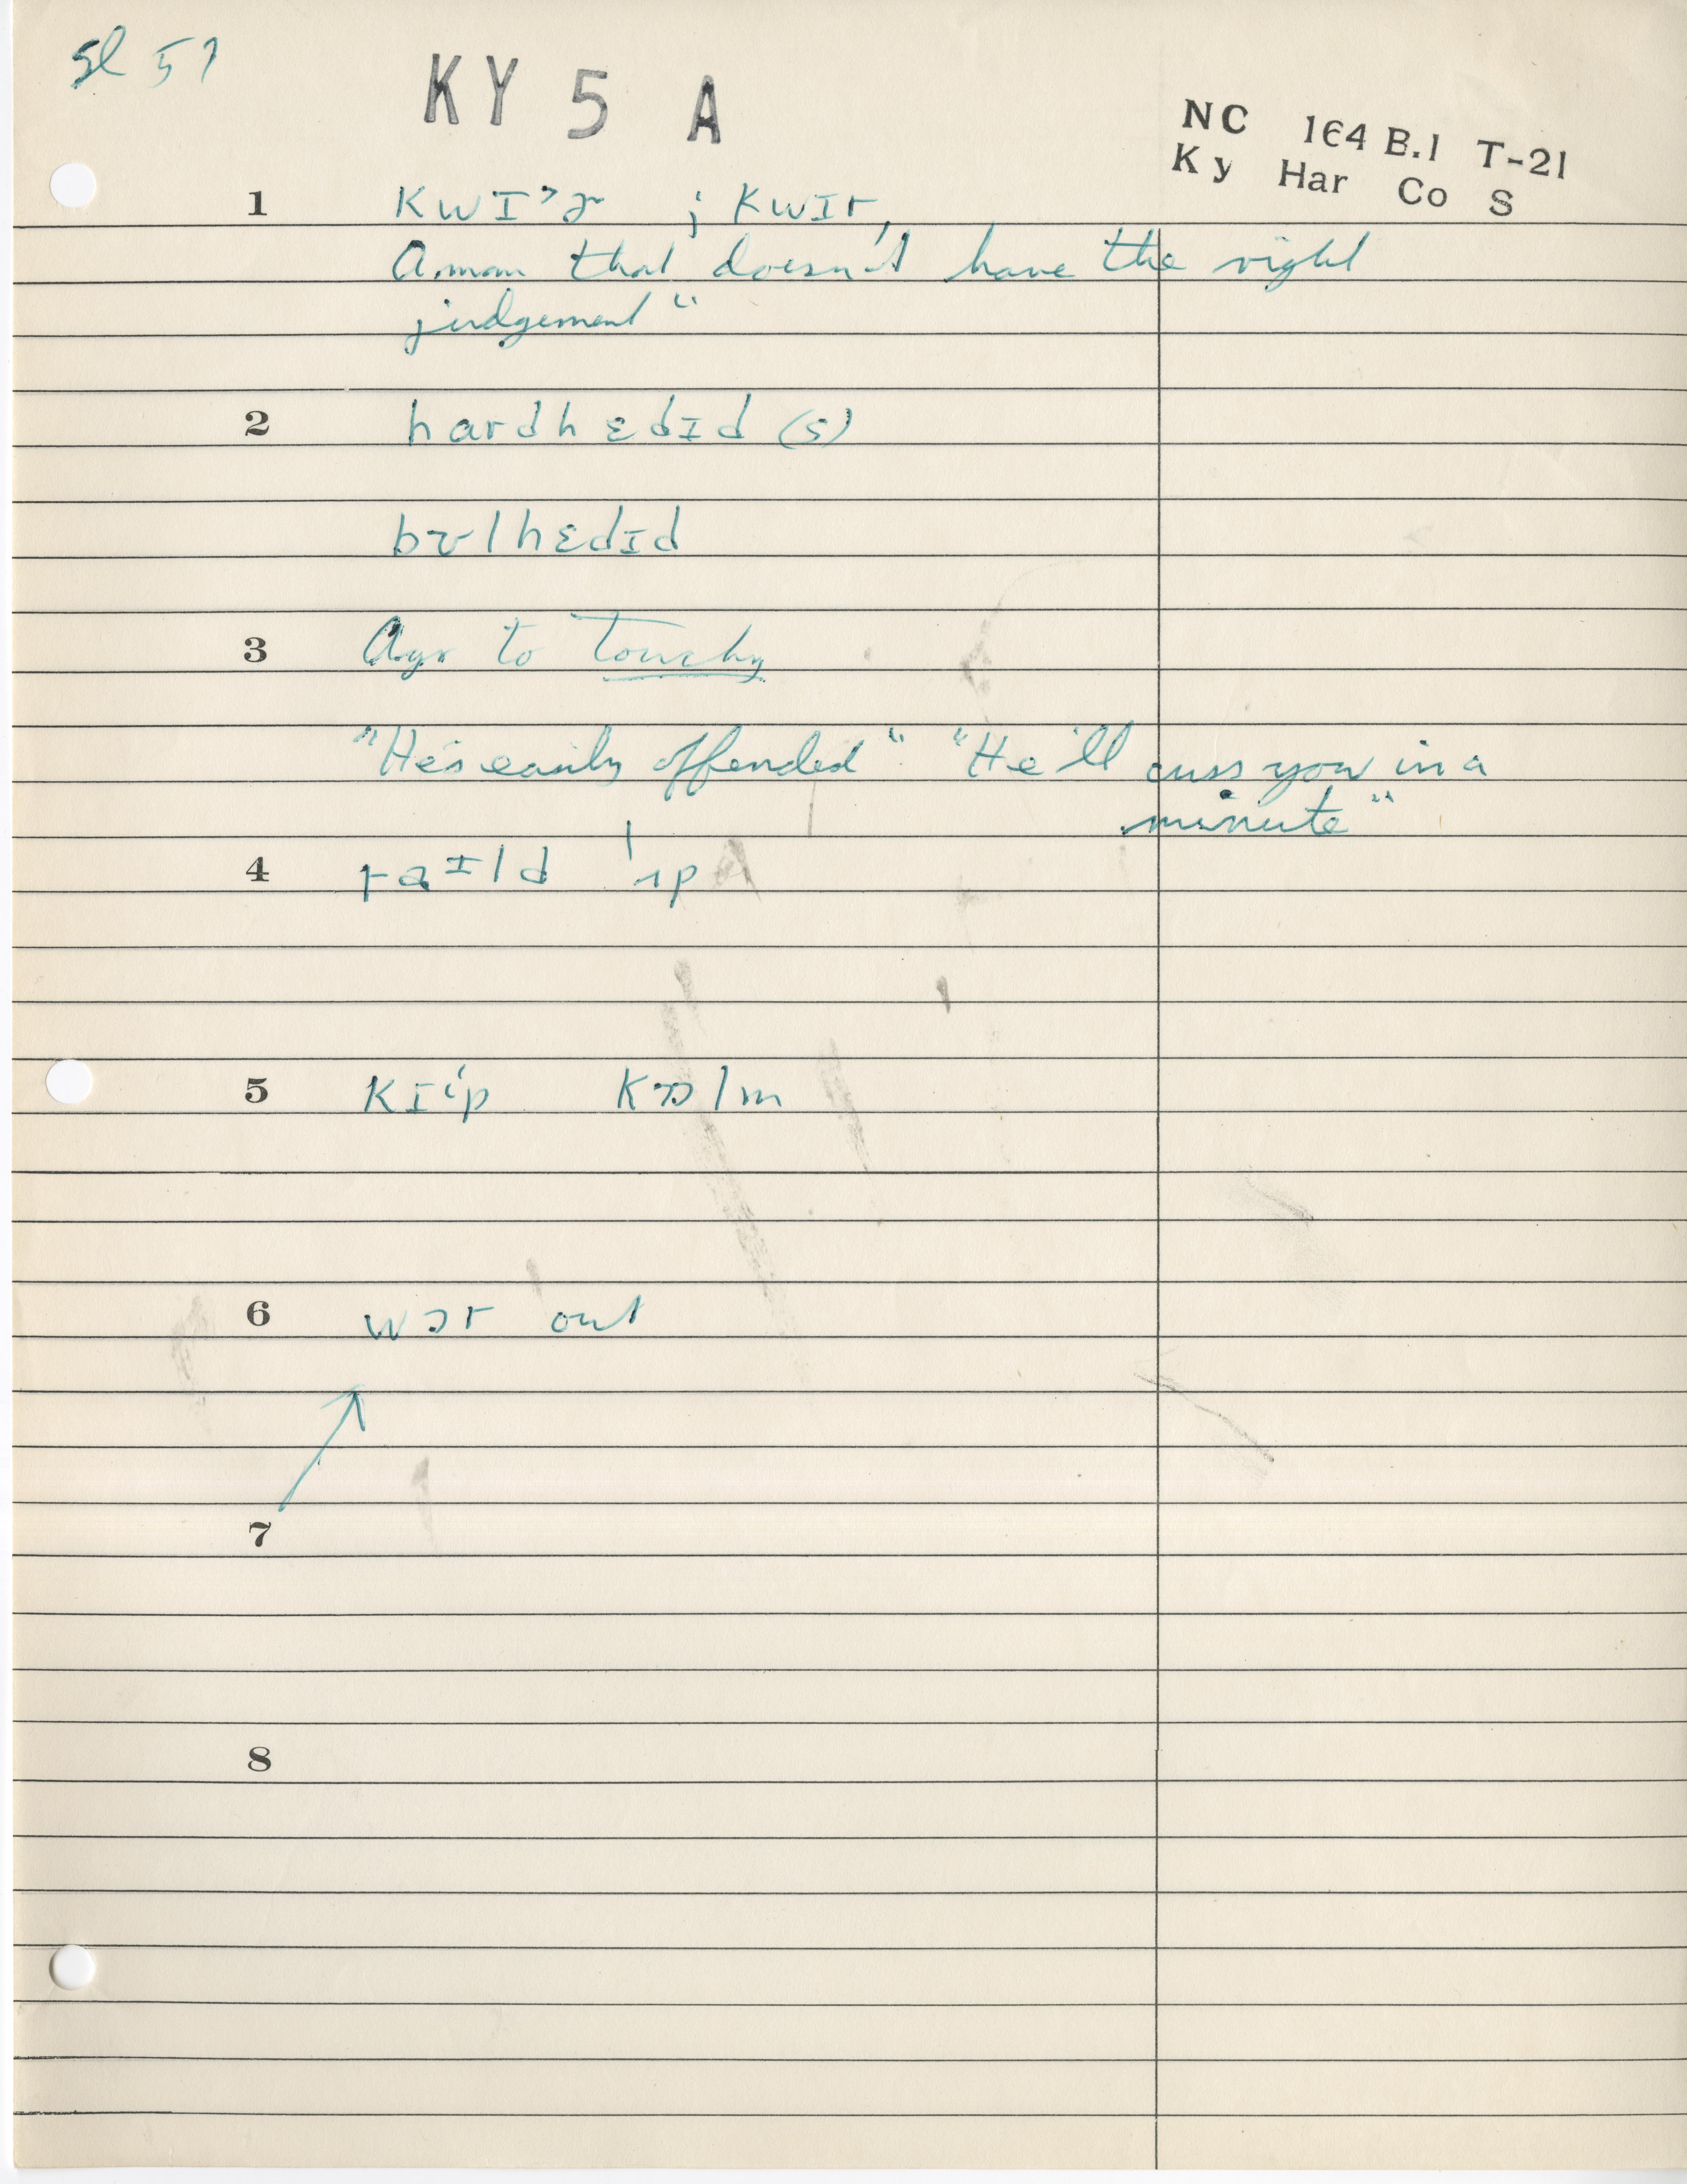 KY 5 A
NC 164 B.1 T-21
Ky Har Co S
1 kwɪˀɚ ; kwɪr,
A man that doesn't have the right
judgement"
2 hardhɛdɪd (s)
bʊlhɛdɪd
3 Agr to touchy
"He's easily offended" "He'll cuss you in a
minute"
4 raɪld ˈʌp
5 kɪⁱp kɒlm
6 wɔr out
7
8